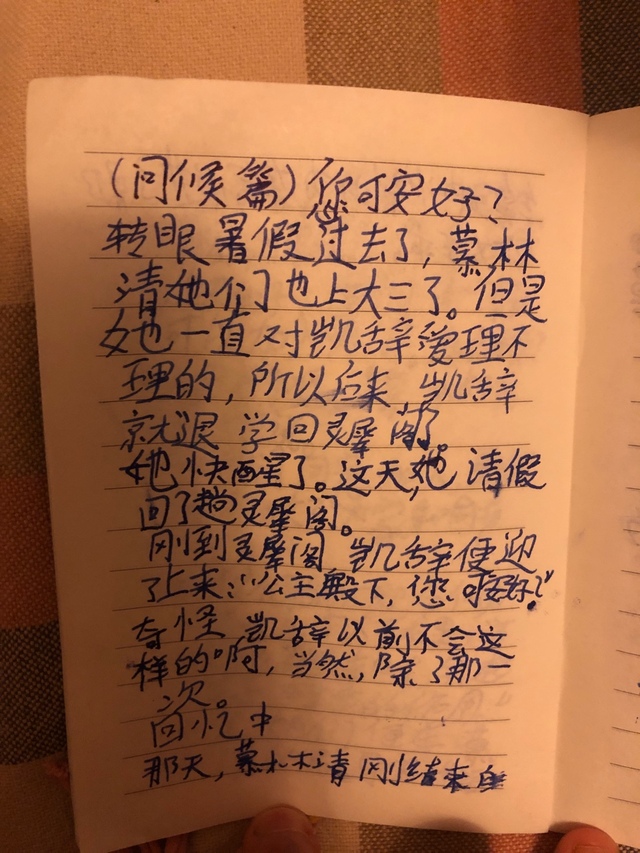 (问候篇)您可安好?
转眼暑假过去了,慕林
清她们也上大三了。但是
她一直对凯辞爱理不
理的,所以后来,凯辞
就退学回灵犀阁了。
她快醒了。这天,她请假
回了趟灵犀阁。
刚到灵犀阁凯辞便迎
了上来:“公主殿下,您可安好?”
奇怪,凯辞以前不会这
样的啊,当然,除了那一
次。
回忆中
那天,慕林清刚结束